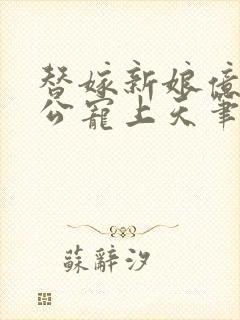 替嫁新娘億
公寵上天筆
蘇辭汐